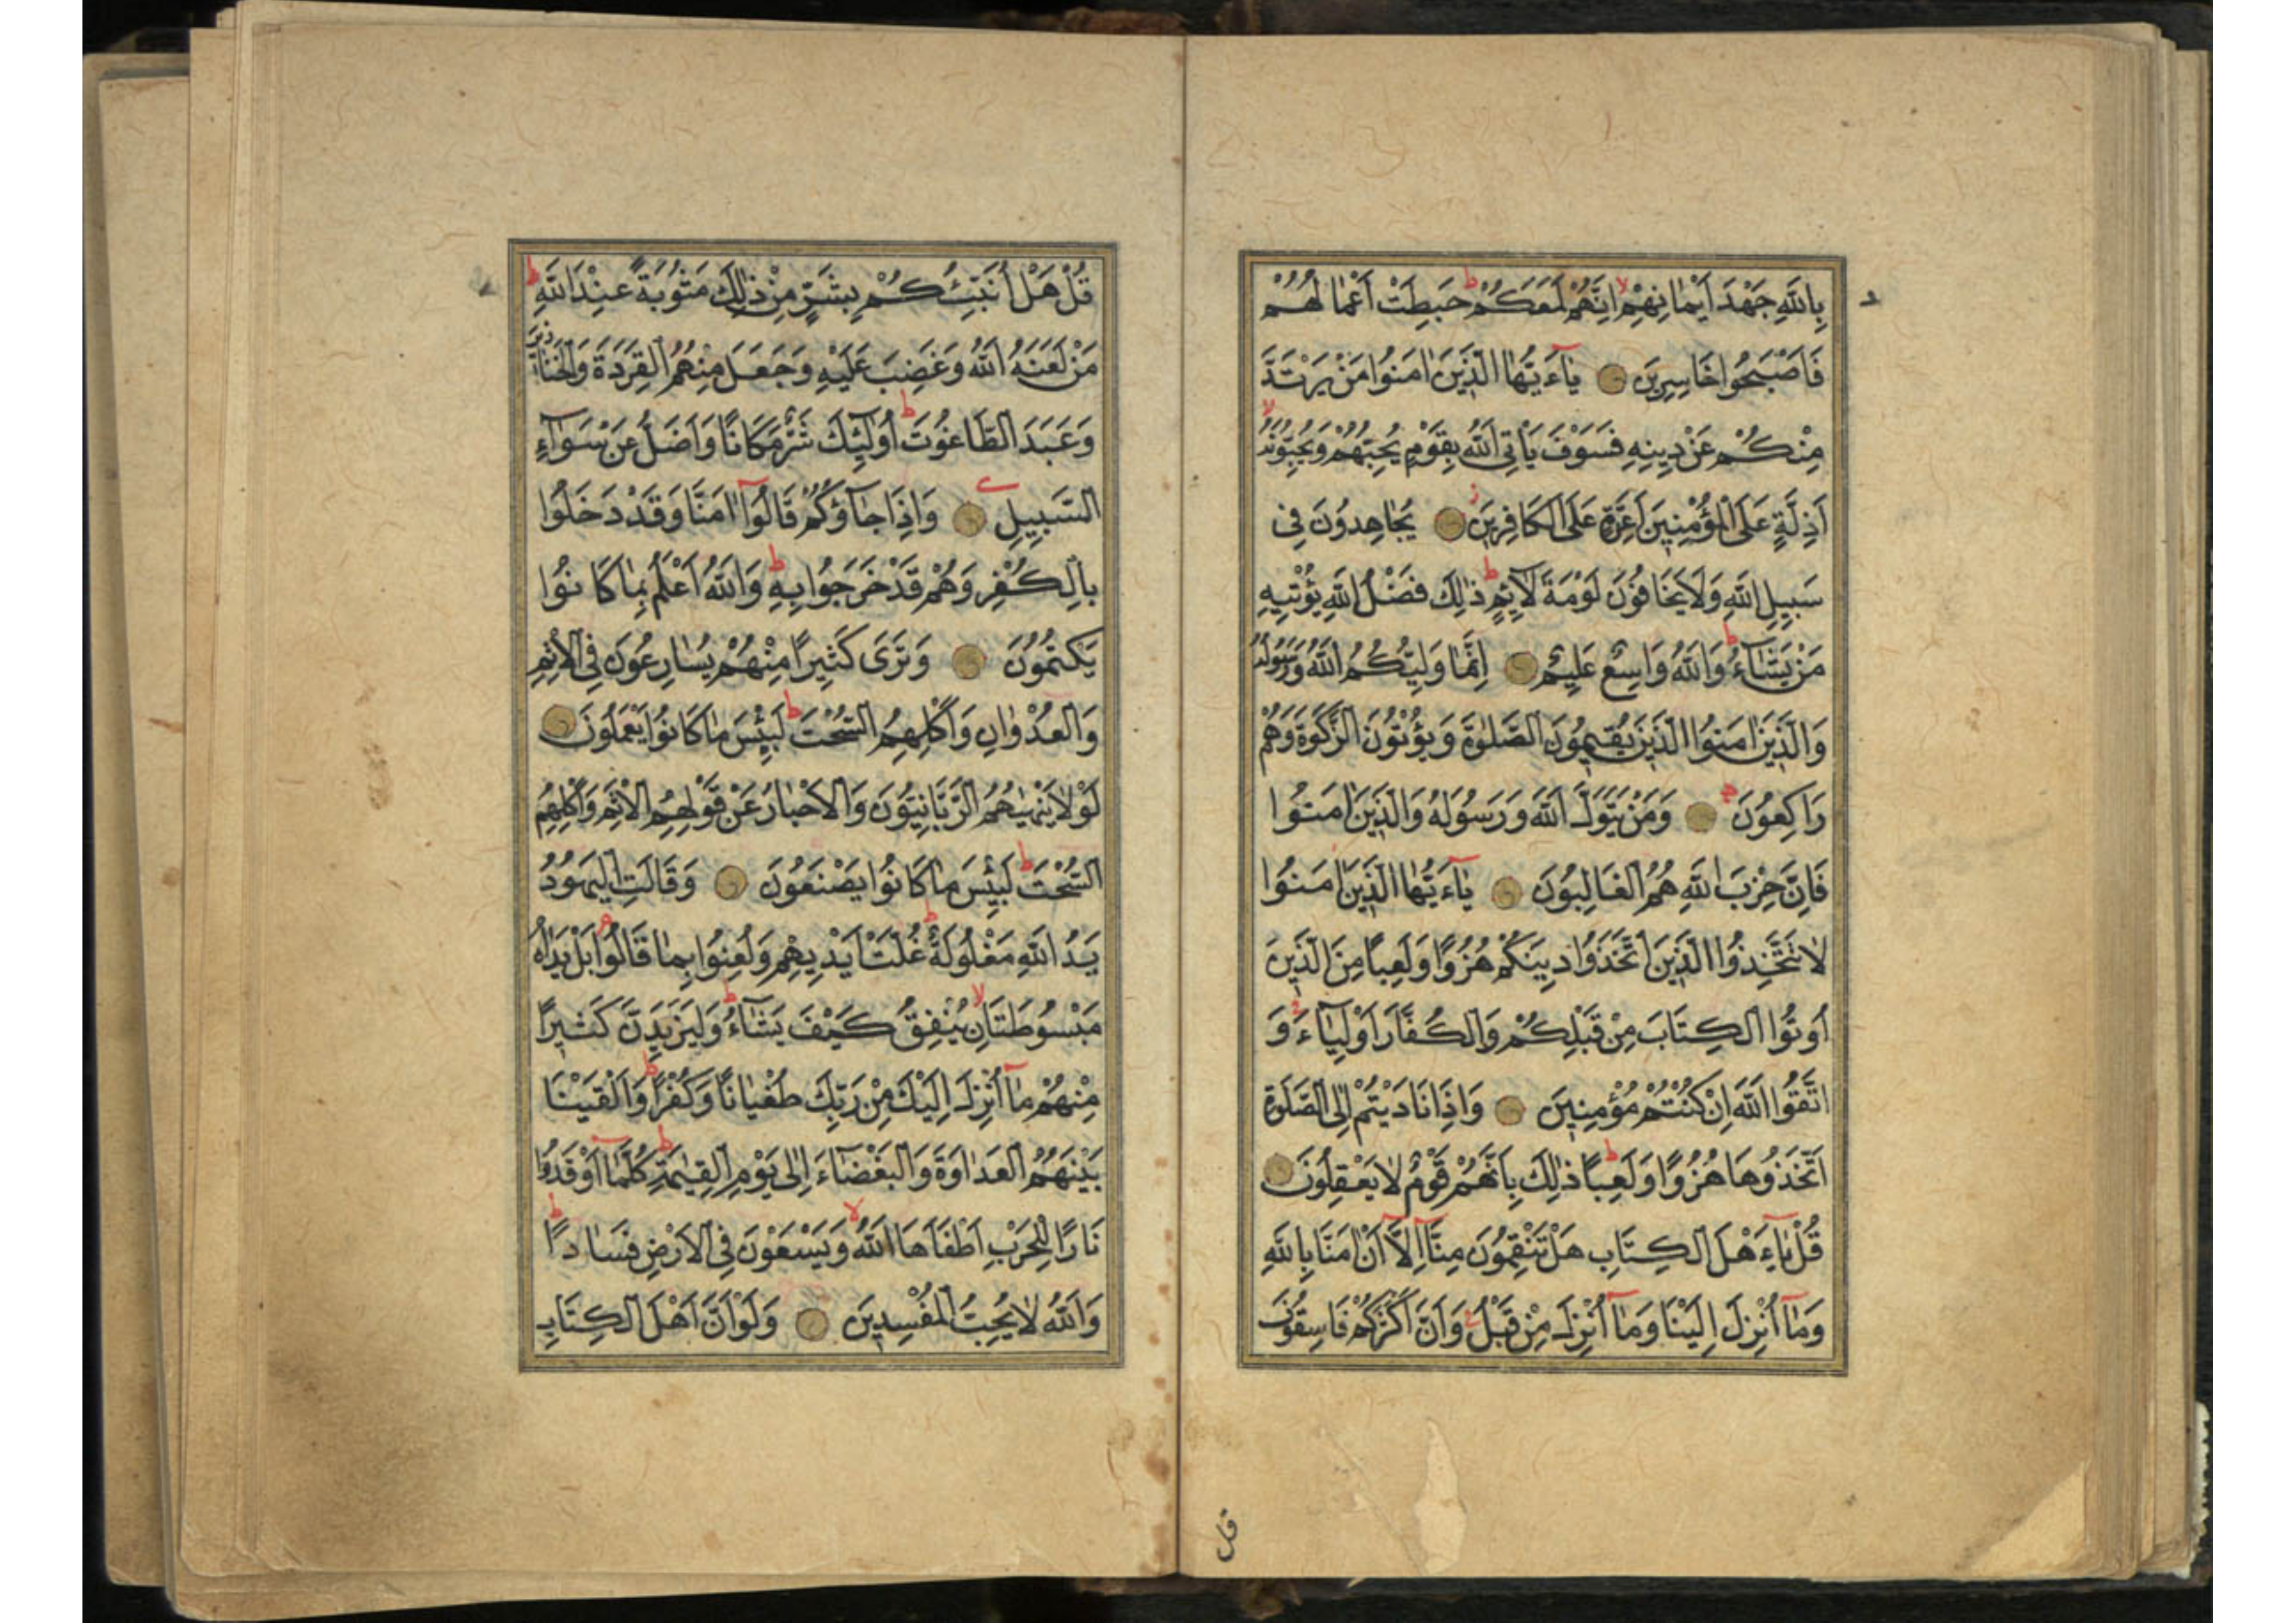 بِاللّٰهِ جَهْدَ اَيْمَانِهِمْ اِنَّهُمْ لَمَعَكُمْ حَبِطَتْ اَعْمَالُهُمْ
فَاَصْبَحُوا خَاسِرِينَ يَاءَيُّهَا الَّذِينَ اٰمَنُوا مَنْ يَرْتَدَّ
مِنْكُمْ عَنْ دِينِهِ فَسَوْفَ يَأْتِى اللّٰهُ بِقَوْمٍ يُحِبُّهُمْ وَيُحِبُّونَهُ
اَذِلَّةٍ عَلَى الْمُؤْمِنِينَ اَعِزَّةٍ عَلَى الْكَافِرِينَ يُجَاهِدُونَ فِى
سَبِيلِ اللّٰهِ وَلَا يَخَافُونَ لَوْمَةَ لَائِمٍ ذٰلِكَ فَضْلُ اللّٰهِ يُؤْتِيهِ
مَنْ يَشَاءُ وَاللّٰهُ وَاسِعٌ عَلِيمٌ اِنَّمَا وَلِيُّكُمُ اللّٰهُ وَرَسُولُهُ
وَالَّذِينَ اٰمَنُوا الَّذِينَ يُقِيمُونَ الصَّلٰوةَ وَيُؤْتُونَ الزَّكٰوةَ وَهُمْ
رَاكِعُونَ وَمَنْ يَتَوَلَّ اللّٰهَ وَرَسُولَهُ وَالَّذِينَ اٰمَنُوا
فَاِنَّ حِزْبَ اللّٰهِ هُمُ الْغَالِبُونَ يَاءَيُّهَا الَّذِينَ اٰمَنُوا
لَا تَتَّخِذُوا الَّذِينَ اتَّخَذُوا دِينَكُمْ هُزُوًا وَلَعِبًا مِنَ الَّذِينَ
اُوتُوا الْكِتَابَ مِنْ قَبْلِكُمْ وَالْكُفَّارَ اَوْلِيَاءَ وَ
اتَّقُوا اللّٰهَ اِنْ كُنْتُمْ مُؤْمِنِينَ وَاِذَا نَادَيْتُمْ اِلَى الصَّلٰوةِ
اتَّخَذُوهَا هُزُوًا وَلَعِبًا ذٰلِكَ بِاَنَّهُمْ قَوْمٌ لَا يَعْقِلُونَ
قُلْ يَاءَهْلَ الْكِتَابِ هَلْ تَنْقِمُونَ مِنَّا اِلَّا اَنْ اٰمَنَّا بِاللّٰهِ
وَمَا اُنْزِلَ اِلَيْنَا وَمَا اُنْزِلَ مِنْ قَبْلُ وَاَنَّ اَكْثَرَكُمْ فَاسِقُونَ
قل
قُلْ هَلْ اُنَبِّئُكُمْ بِشَرٍّ مِنْ ذٰلِكَ مَثُوبَةً عِنْدَ اللّٰهِ
مَنْ لَعَنَهُ اللّٰهُ وَغَضِبَ عَلَيْهِ وَجَعَلَ مِنْهُمُ الْقِرَدَةَ وَالْخَنَازِيرَ
وَعَبَدَ الطَّاغُوتَ اُولٰئِكَ شَرٌّ مَكَانًا وَاَضَلُّ عَنْ سَوَاءِ
السَّبِيلِ وَاِذَا جَاؤُكُمْ قَالُوا اٰمَنَّا وَقَدْ دَخَلُوا
بِالْكُفْرِ وَهُمْ قَدْ خَرَجُوا بِهِ وَاللّٰهُ اَعْلَمُ بِمَا كَانُوا
يَكْتُمُونَ وَتَرَى كَثِيرًا مِنْهُمْ يُسَارِعُونَ فِى الْاِثْمِ
وَالْعُدْوَانِ وَاَكْلِهِمُ السُّحْتَ لَبِئْسَ مَا كَانُوا يَعْمَلُونَ
لَوْلَا يَنْهٰيهُمُ الرَّبَّانِيُّونَ وَالْاَحْبَارُ عَنْ قَوْلِهِمُ الْاِثْمَ وَاَكْلِهِمُ
السُّحْتَ لَبِئْسَ مَا كَانُوا يَصْنَعُونَ وَقَالَتِ الْيَهُودُ
يَدُ اللّٰهِ مَغْلُولَةٌ غُلَّتْ اَيْدِيهِمْ وَلُعِنُوا بِمَا قَالُوا بَلْ يَدَاهُ
مَبْسُوطَتَانِ يُنْفِقُ كَيْفَ يَشَاءُ وَلَيَزِيدَنَّ كَثِيرًا
مِنْهُمْ مَا اُنْزِلَ اِلَيْكَ مِنْ رَبِّكَ طُغْيَانًا وَكُفْرًا وَاَلْقَيْنَا
بَيْنَهُمُ الْعَدَاوَةَ وَالْبَغْضَاءَ اِلٰى يَوْمِ الْقِيٰمَةِ كُلَّمَا اَوْقَدُوا
نَارًا لِلْحَرْبِ اَطْفَاَهَا اللّٰهُ وَيَسْعَوْنَ فِى الْاَرْضِ فَسَادًا
وَاللّٰهُ لَا يُحِبُّ الْمُفْسِدِينَ وَلَوْ اَنَّ اَهْلَ الْكِتَابِ